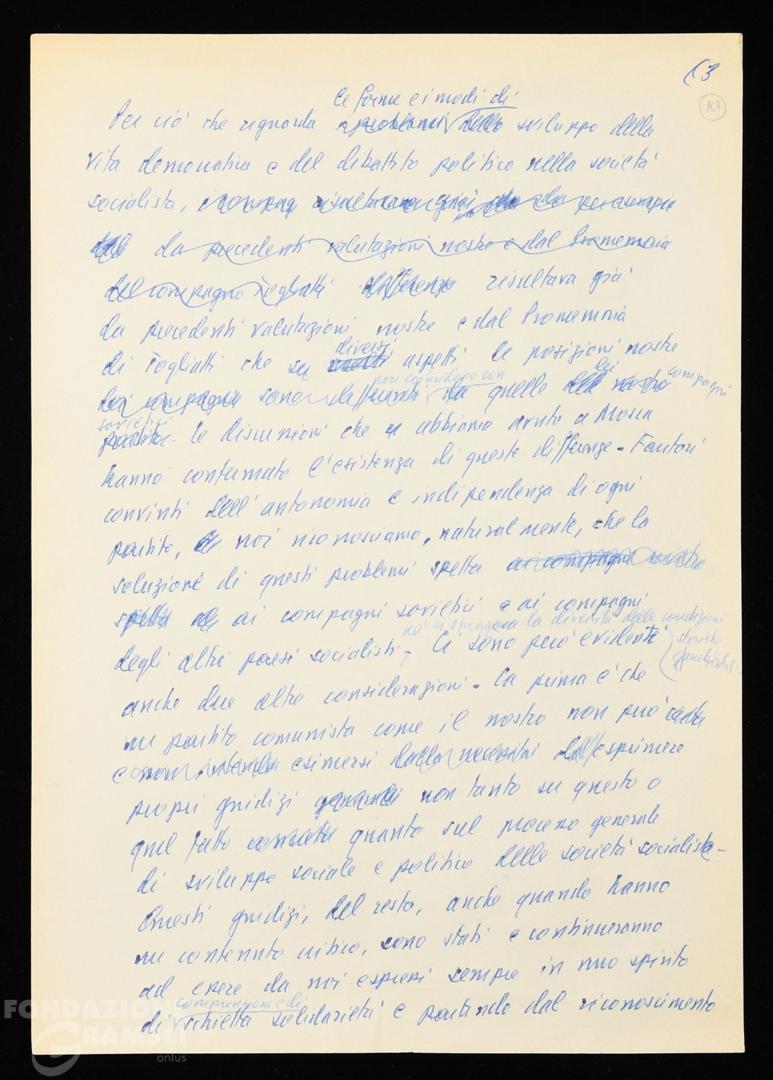 13
107
le forme e i modi di
Per ciò che riguarda i problemi dello sviluppo della
vita democratica e del dibattito politico nella società
socialista, risultava già
da precedenti valutazioni nostre e dal Promemoria
del compagno Togliatti risultava già
da precedenti valutazioni nostre e dal Promemoria
diversi
di Togliatti che su aspetti le posizioni nostre
non coincidono con
sono differenti da quelle dei compagni
sovietici
partito. Le discussioni che abbiamo avuto a Mosca
hanno confermato l'esistenza di queste differenze. Fautori
convinti dell'autonomia e indipendenza di ogni
partito, noi riconosciamo, naturalmente, che la
soluzione di questi problemi spetta
spetta ai compagni sovietici e ai compagni
né ci sfugge la diversità delle condizioni
storiche
degli altri paesi socialisti. Ci sono però evidenti
anche due altre considerazioni. La prima è che
un partito comunista come il nostro non può
e non intende esimersi dalla necessità dall'esprimere
propri giudizi non tanto su questo o
quel fatto quanto sul processo generale
di sviluppo sociale e politico delle società socialiste.
Questi giudizi, del resto, anche quando hanno
un contenuto critico, sono stati e continueranno
ad essere da noi espressi sempre in uno spirito
comprensione e di
di schietta solidarietà e partendo dal riconoscimento
FONDAZIONE
GRAMSCI
onlus